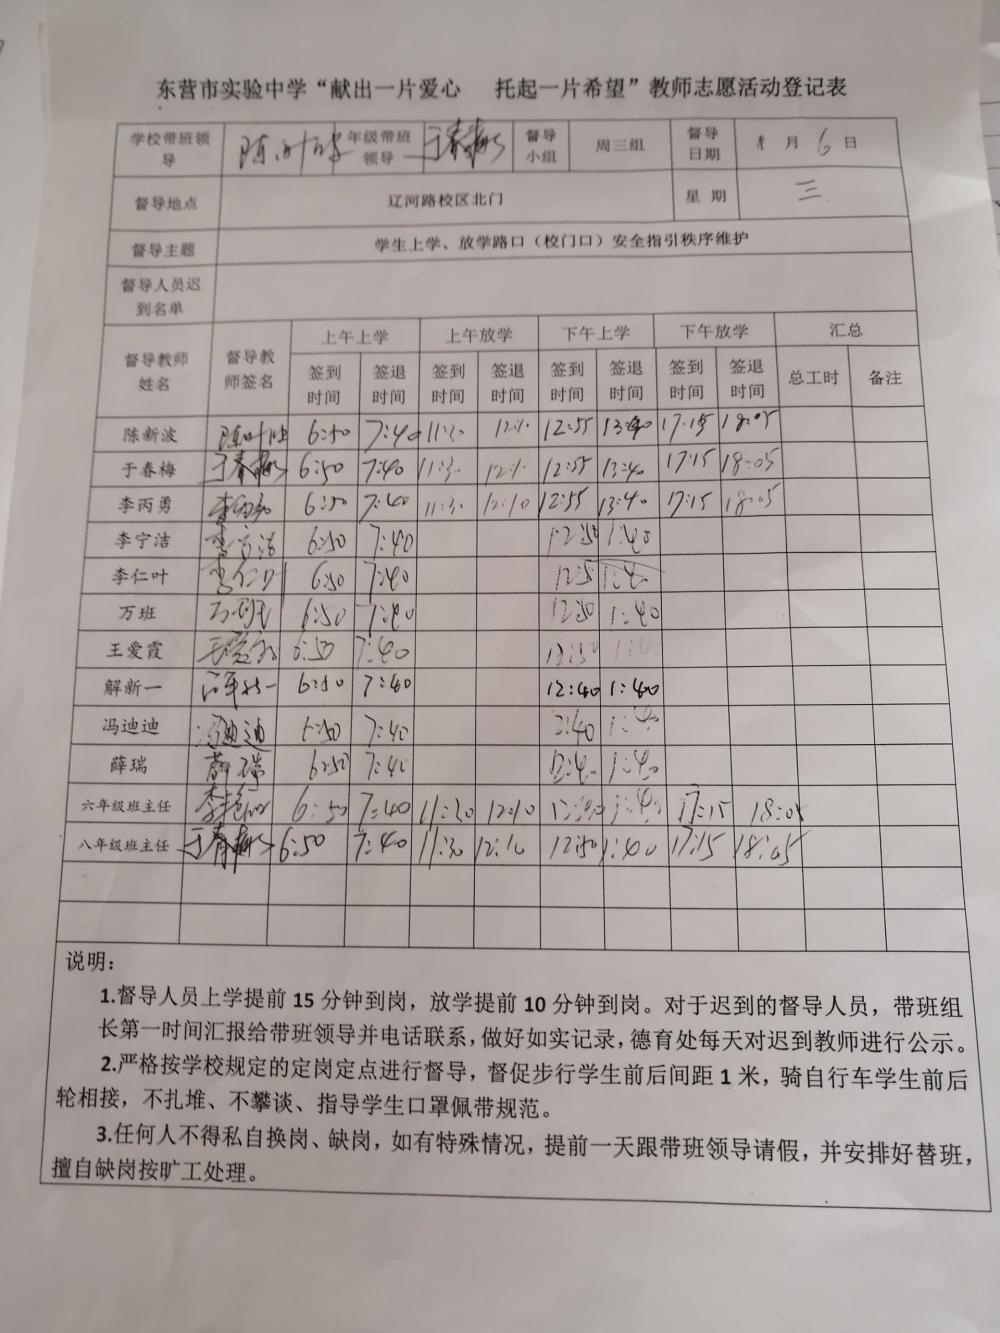 东营市实验中学“献出一片爱心 托起一片希望”教师志愿活动登记表
学校带班领导 年级带班领导 于春梅 督导小组 周三组 督导日期 月 6 日
督导地点 辽河路校区北门 星 期 三
督导主题 学生上学、放学路口（校门口）安全指引秩序维护
督导人员迟到名单
督导教师姓名 督导教师签名 上午上学 上午放学 下午上学 下午放学 汇总
签到时间 签退时间 签到时间 签退时间 签到时间 签退时间 签到时间 签退时间 总工时 备注
陈新波 6:50 7:40 12:55 13:40 17:15 18:05
于春梅 于春梅 6:50 7:40 11:30 12:55 13:40 17:15 18:05
李丙勇 李丙勇 6:50 7:40 11:30 12:10 12:55 13:40 17:15 18:05
李宁洁 李宁洁 6:50 7:40 12:50 1:40
李仁叶 李仁叶 6:50 7:40 1:40
万班 万班 6:50 7:40 12:50 1:40
王爱霞 王爱霞 6:50 7:40 12:50 1:4
解新一 解新一 6:50 7:40 12:40 1:40
冯迪迪 冯迪迪 6:50 7:40 2:40 1:40
薛瑞 薛瑞 6:50 7:40 12:40 1:40
六年级班主任 6:50 7:40 11:30 12:10 1:40 17:15 18:05
八年级班主任 于春梅 6:50 7:40 11:30 12:10 12:50 1:40 17:15 18:05
说明：
1.督导人员上学提前 15 分钟到岗，放学提前 10 分钟到岗。对于迟到的督导人员，带班组
长第一时间汇报给带班领导并电话联系，做好如实记录，德育处每天对迟到教师进行公示。
2.严格按学校规定的定岗定点进行督导，督促步行学生前后间距 1 米，骑自行车学生前后
轮相接，不扎堆、不攀谈、指导学生口罩佩带规范。
3.任何人不得私自换岗、缺岗，如有特殊情况，提前一天跟带班领导请假，并安排好替班，
擅自缺岗按旷工处理。